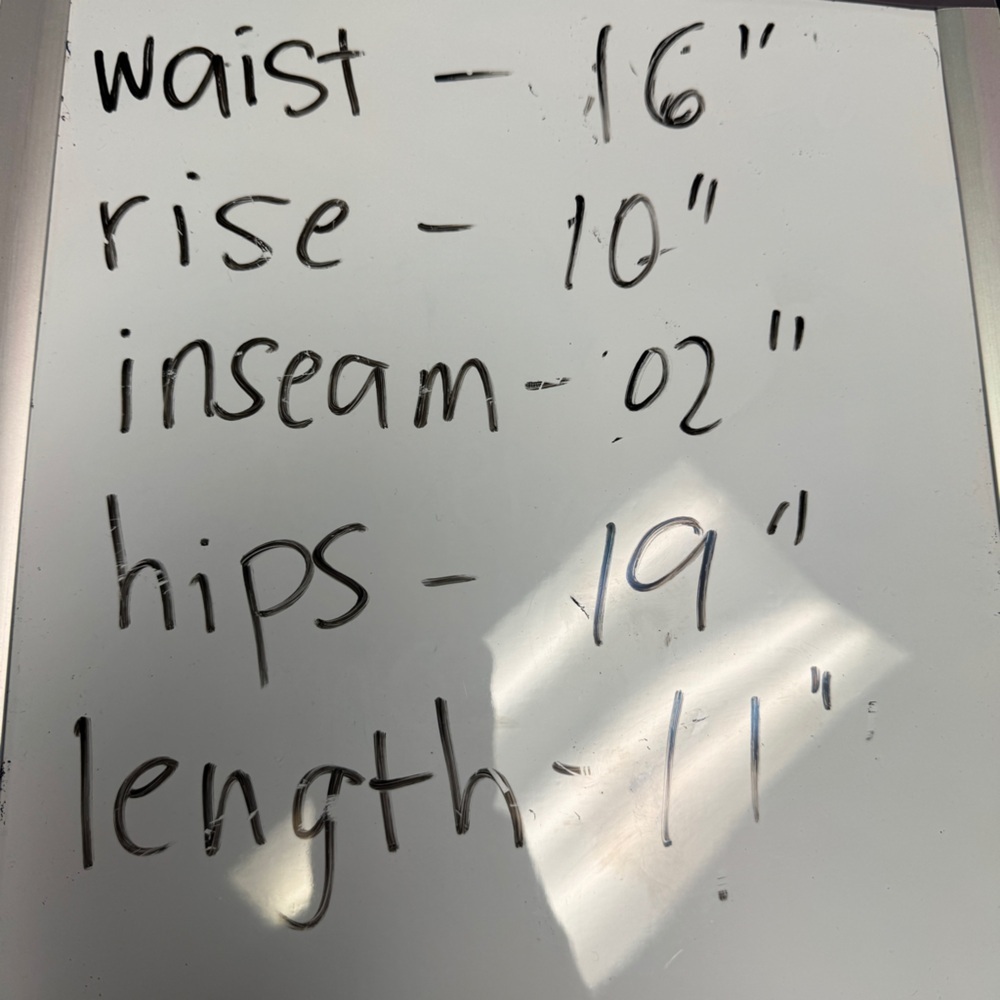 waist - 16"
rise - 10"
inseam - 02"
hips - 19"
length - 11"